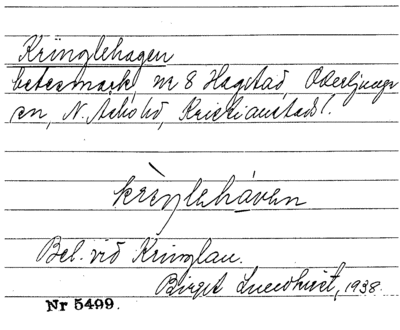 Kringlehagen
betesmark, nr 8 Hagstad, Oderljunga
sn, N. Åsbo hd, Kristianstads l.
krìŋlehá̱ven
Bel. vid Kringlan.
Birgit Lundkvist, 1938.
Nr 5499.